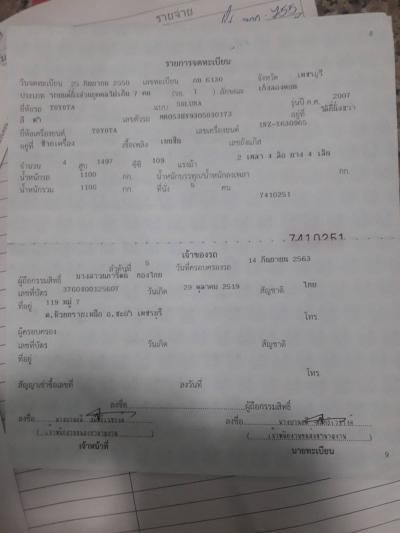 รายจ่าย
8
รายการจดทะเบียน
วันจดทะเบียน 25 กันยายน 2550 เลขทะเบียน กย 6130 จังหวัด เพชรบุรี
ประเภท รถยนต์นั่งส่วนบุคคลไม่เกิน 7 คน (รย. 1 ) ลักษณะ เก๋งสองตอน
ยี่ห้อรถ TOYOTA แบบ SOLUNA รุ่นปี ค.ศ. 2007
สี ดำ เลขตัวรถ MR053HY9305030173 อยู่ที่
ยี่ห้อเครื่องยนต์ TOYOTA เลขเครื่องยนต์ 1NZ-X630965
อยู่ที่ ซ้ายเครื่อง เชื้อเพลิง เบนซิน เลขถังแก๊ส
จำนวน 4 สูบ 1497 ซีซี 109 แรงม้า 2 เพลา 4 ล้อ ยาง 4 เส้น
น้ำหนักรถ 1100 กก. น้ำหนักบรรทุก/น้ำหนักลงเพลา กก.
น้ำหนักรวม 1100 กก. ที่นั่ง 5 คน
7410251
7410251
เจ้าของรถ
ลำดับที่ 5 วันที่ครอบครองรถ 14 กันยายน 2563
ผู้ถือกรรมสิทธิ์ นางสาวนภารัตน์ ทองไทย
เลขที่บัตร 3760400325607 วันเกิด 29 ตุลาคม 2519 สัญชาติ ไทย
ที่อยู่ 119 หมู่ 7
ต.ห้วยทรายเหนือ อ.ชะอำ เพชรบุรี โทร.
ผู้ครอบครอง
เลขที่บัตร วันเกิด สัญชาติ
ที่อยู่
โทร.
สัญญาเช่าซื้อเลขที่ ลงวันที่
ลงชื่อ ผู้ถือกรรมสิทธิ์
ลงชื่อ ลงชื่อ
เจ้าหน้าที่ นายทะเบียน
9